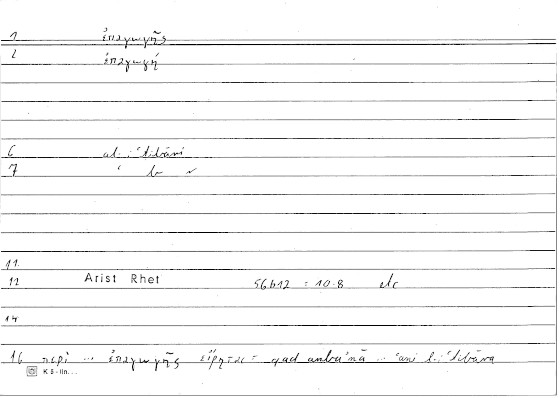 1 ἐπαγωγῆς
2 ἐπαγωγή
6 al-iʿtibāri
7 ʿ b r
11
12 Arist Rhet 56b12 = 10.8 etc
14
16 περὶ ... ἐπαγωγῆς εἴρηται = qad anbaʾnā ... ʿani l-iʿtibāri
K 8 - lin...